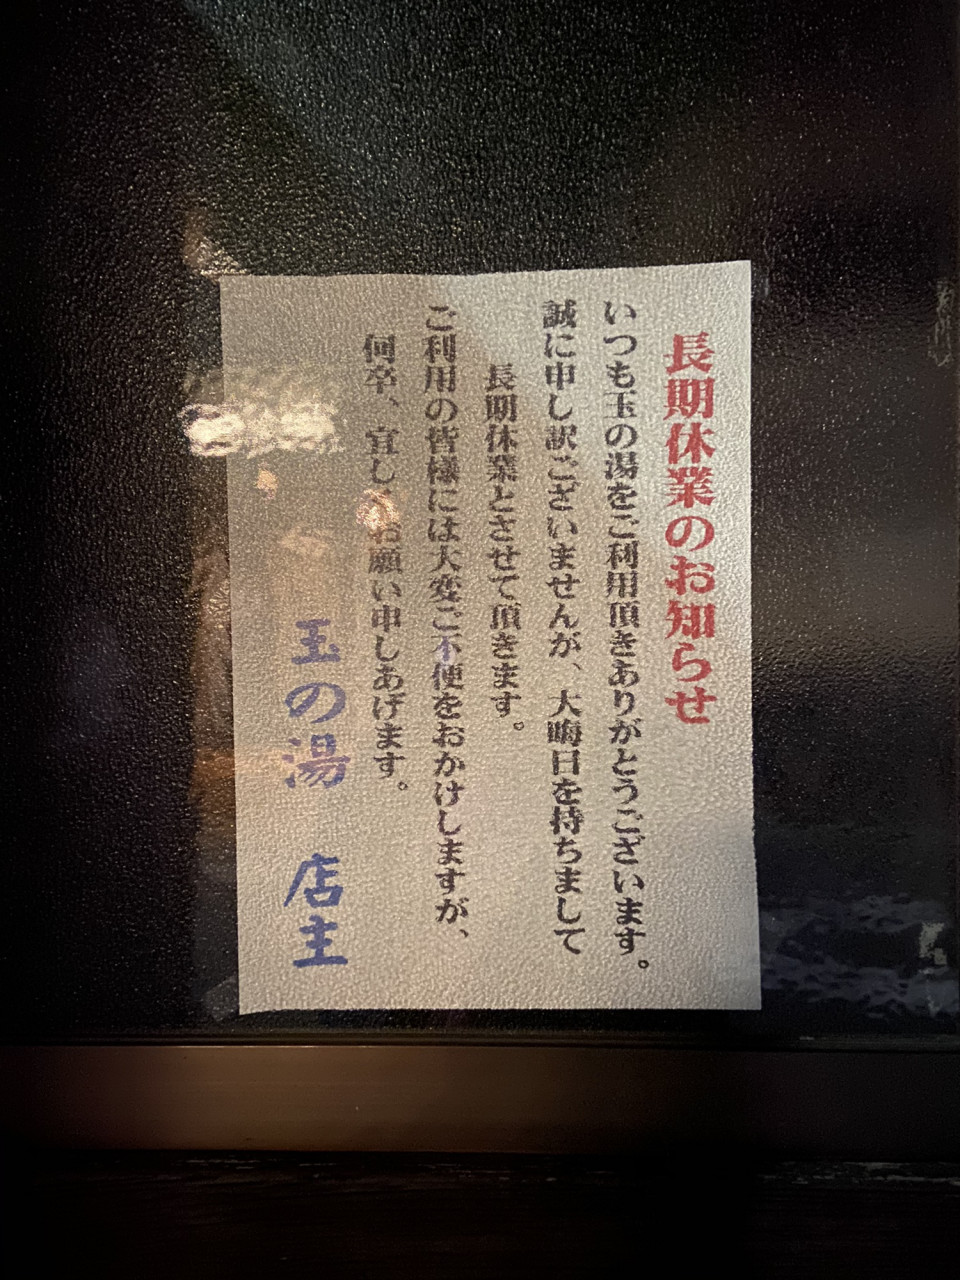 長期休業のお知らせ
いつも玉の湯をご利用頂きありがとうございます。
誠に申し訳ございませんが、大晦日を持ちまして
長期休業とさせて頂きます。
ご利用の皆様には大変ご不便をおかけしますが、
何卒、宜し お願い申しあげます。
玉の湯 店主